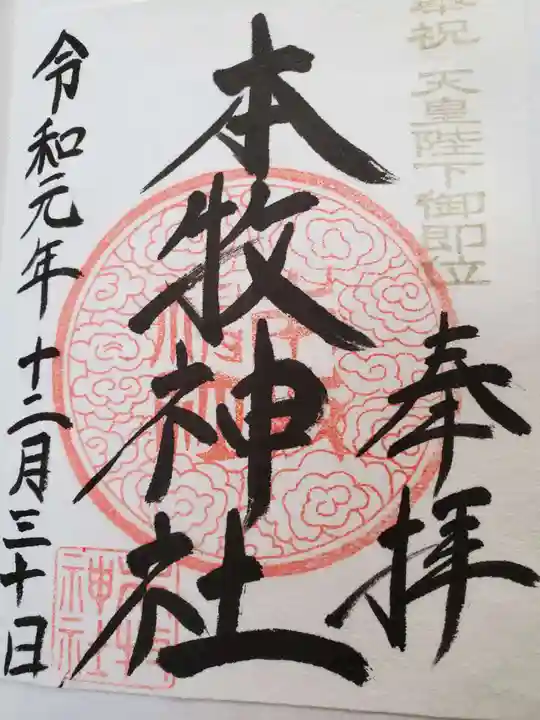 奉祝 天皇陛下御即位
奉拝
本牧神社
令和元年十二月三十日
本牧神社